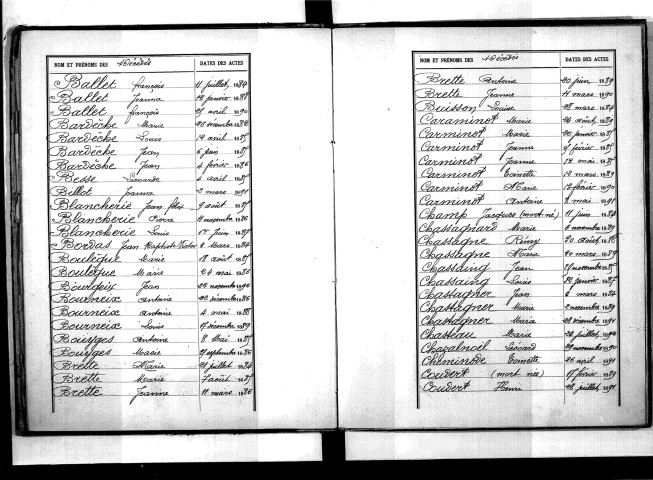 NOM ET PRÉNOMS DES Décédés DATES DES ACTES
Ballet François 11 juillet 1884
Ballet Joanna 12 janvier 1888
Ballet François 25 avril 1890
Bardèche Marie 1886
Bardèche Louis 12 avril 1885
Bardèche Jean 6 juin 1885
Bardèche Jean 4 février 1886
Besse Léonarde 4 avril 1885
Billot Joanna 2 mars 1891
Blancherie Jean 9 août 1885
Blancherie 11 novembre 1886
Blancherie Louis 17 juin 1887
Bordas Jean Baptiste 2 mars 1884
Boulègue Marie 18 août 1885
Boulègue Marie 24 mai 1886
Bourgeix Jean novembre 1886
Bourneix Antoine décembre 1886
Bourneix Antoine 4 mai 1888
Bourneix Louis 17 décembre 1889
Bouyges Antoine 8 mai 1885
Bouyges Marie septembre 1886
Brette Marie 21 juillet 1884
Brette Marie 7 août 1885
Brette Jeanne 11 mars 1886
NOM ET PRÉNOMS DES Décédés DATES DES ACTES
Brette Antoine 20 juin 1889
Brette Jeanne 11 mars 1890
Buisson Louise 28 mars 1884
Caraminot Marie 26 août 1889
Carminot Marie 20 janvier 1885
Carminot Jeanne 9 février 1885
Carminot Jeanne 12 mai 1885
Carminot Tomette 12 mars 1889
Carminot Marie 12 février 1890
Carminot Antoine 8 mai 1891
Champ Jacques (mort né) 11 juin 1884
Chassagnard Marie 6 novembre 1889
Chassagne Rémy 20 août 1886
Chassagne Marie 20 mars 1889
Chassaing Jean novembre 1885
Chassaing Louis 12 janvier 1887
Chastagner Jean 2 mars 1884
Chastagner Marie 2 novembre 1889
Chastagner Marie 28 décembre 1891
Chasteau Marie 26 juillet 1890
Chazalnoël Léonard 29 novembre 1890
Cheminade Tomette 26 avril 1891
Coudert (mort née) 17 février 1889
Coudert Henri 28 juillet 1891